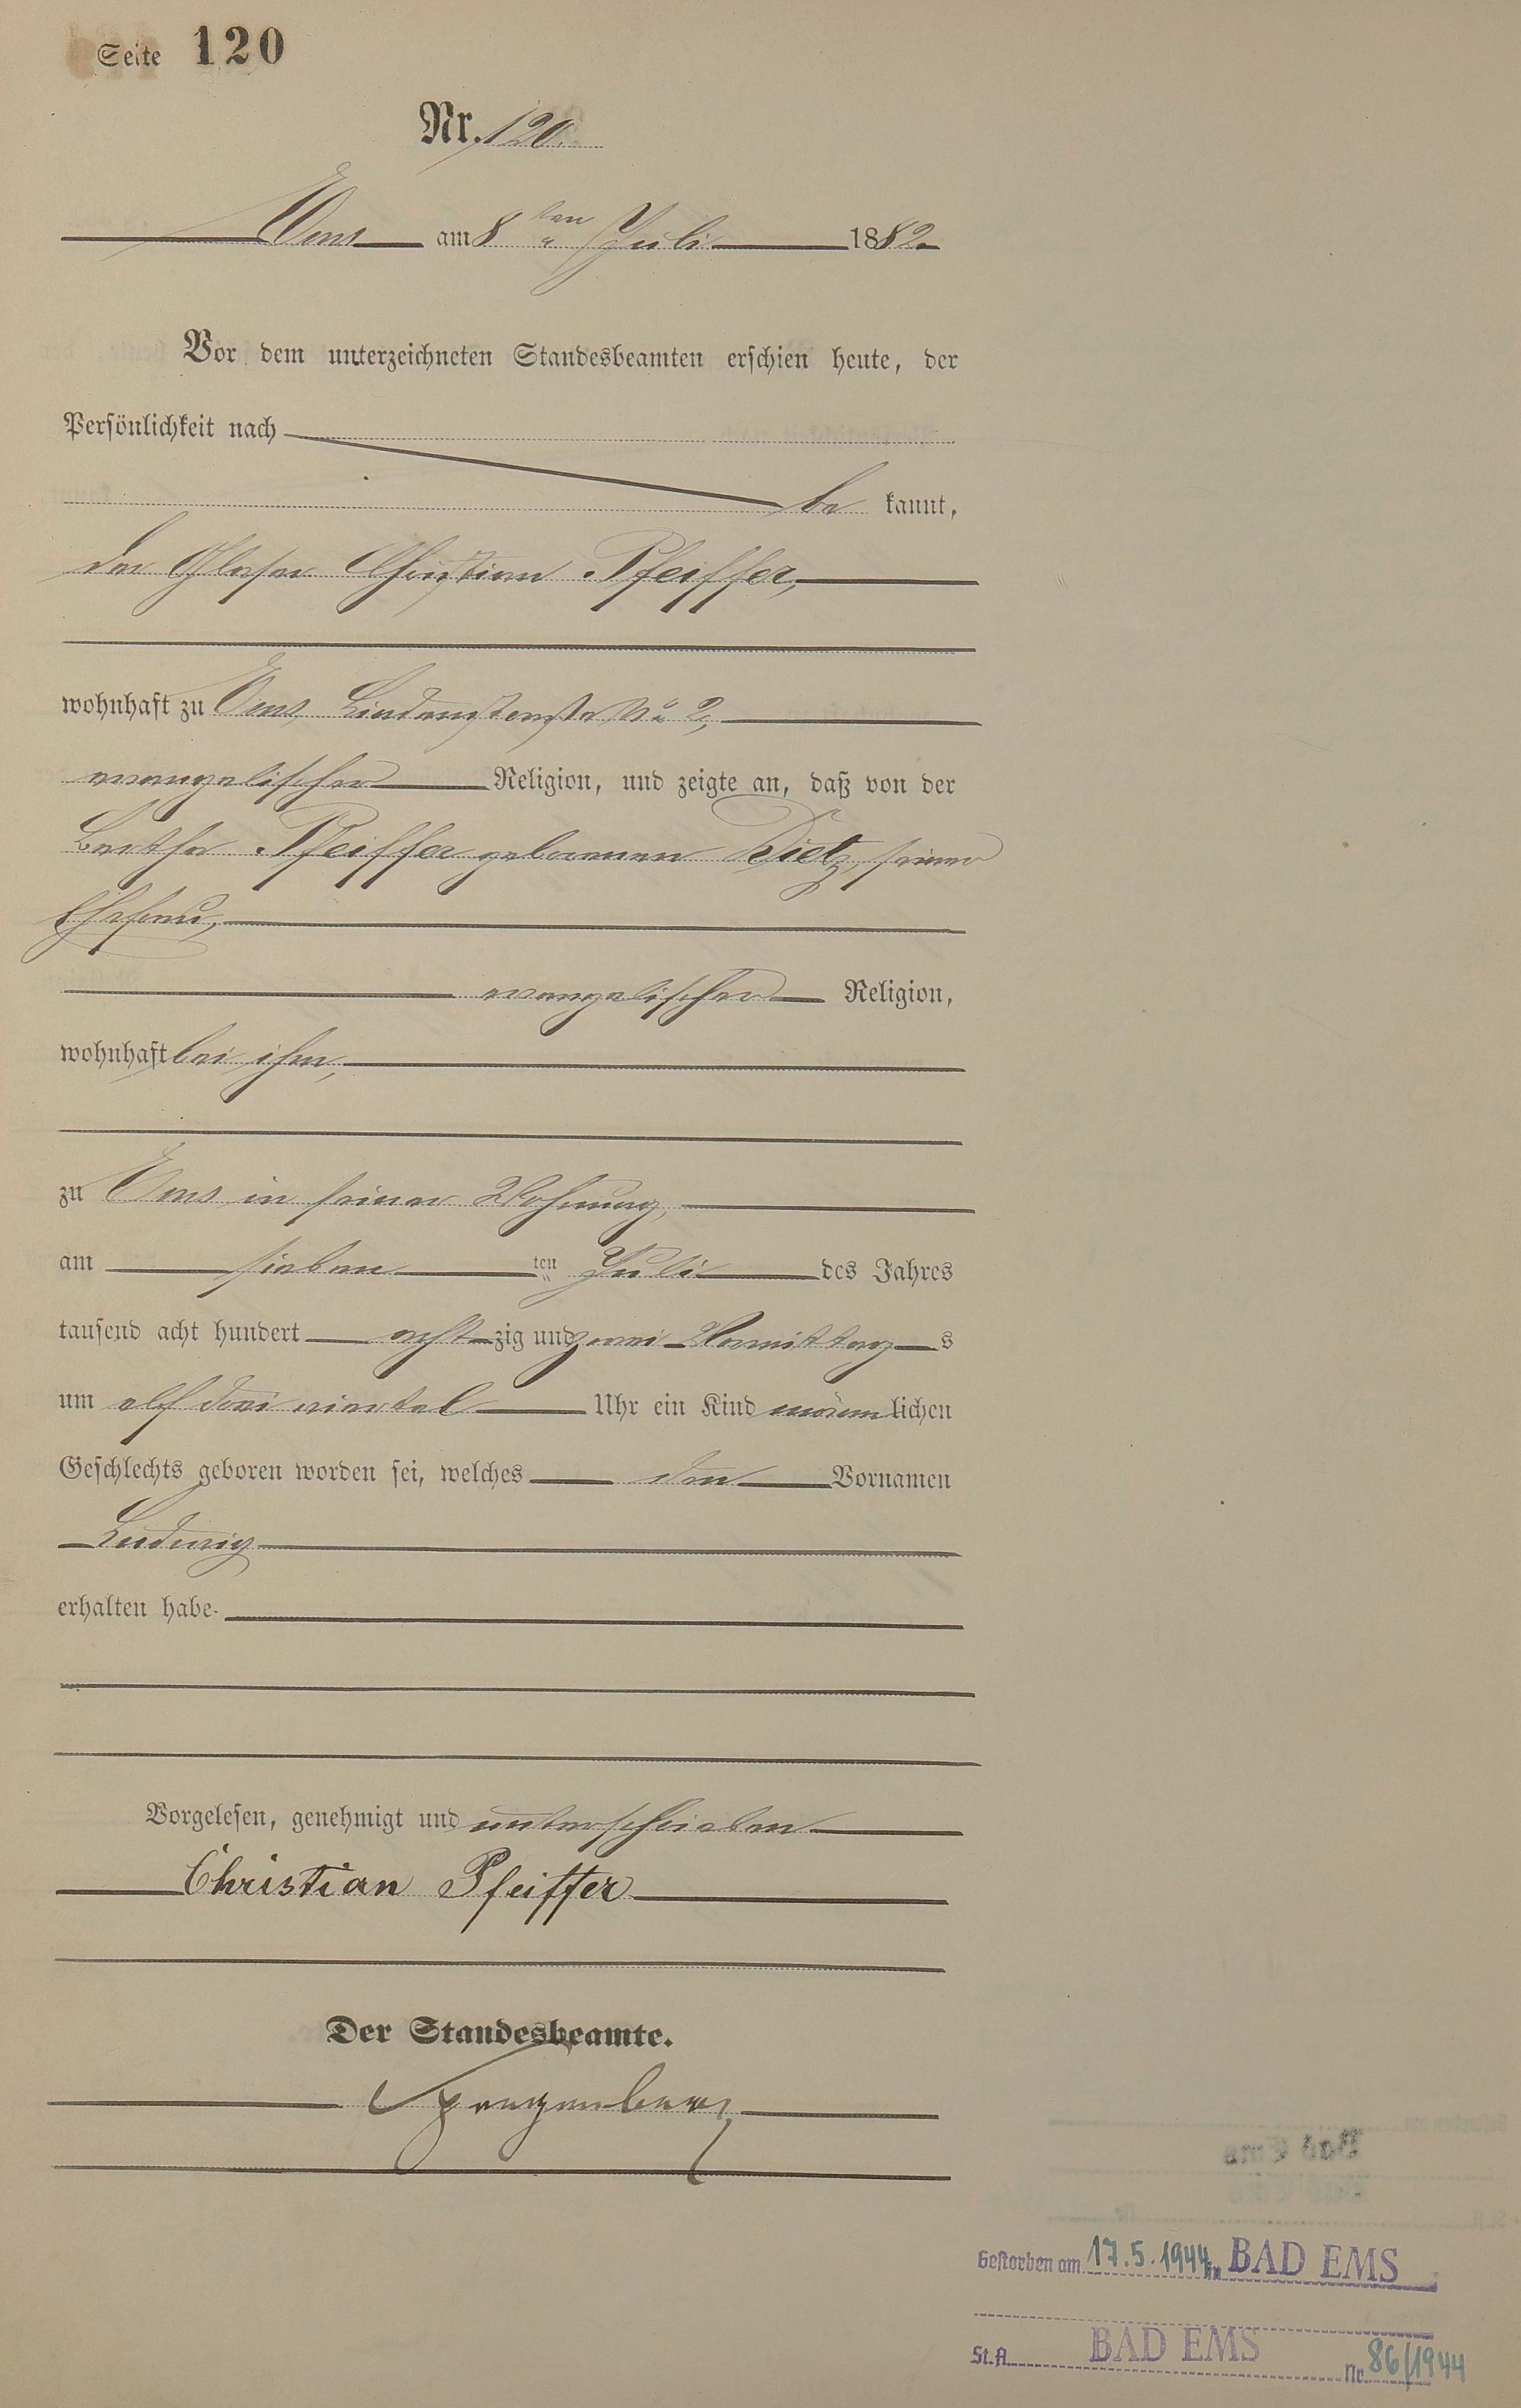 Seite 120
Nr. 120.
Ems am 8ten Juli 1882.
Vor dem unterzeichneten Standesbeamten erschien heute, der
Persönlichkeit nach
be kannt,
der Glaser Christian Pfeiffer,
wohnhaft zu Ems, No 2,
evangelischer Religion, und zeigte an, daß von der
Bertha Pfeiffer geborenen Dietz, seiner
Ehefrau,
evangelischer Religion,
wohnhaft bei ihm,
zu Ems in seiner Wohnung,
am sieben ten Juli des Jahres
tausend acht hundert acht zig und zwei Vormittag s
um elf drei viertel Uhr ein Kind männ lichen
Geschlechts geboren worden sei, welches den Vornamen
Ludwig
erhalten habe.
Vorgelesen, genehmigt und unterschrieben
Christian Pfeiffer
Der Standesbeamte.
Spangenberg
Gestorben am 17.5.1944 in BAD EMS
St.A. BAD EMS Nr. 86/1944